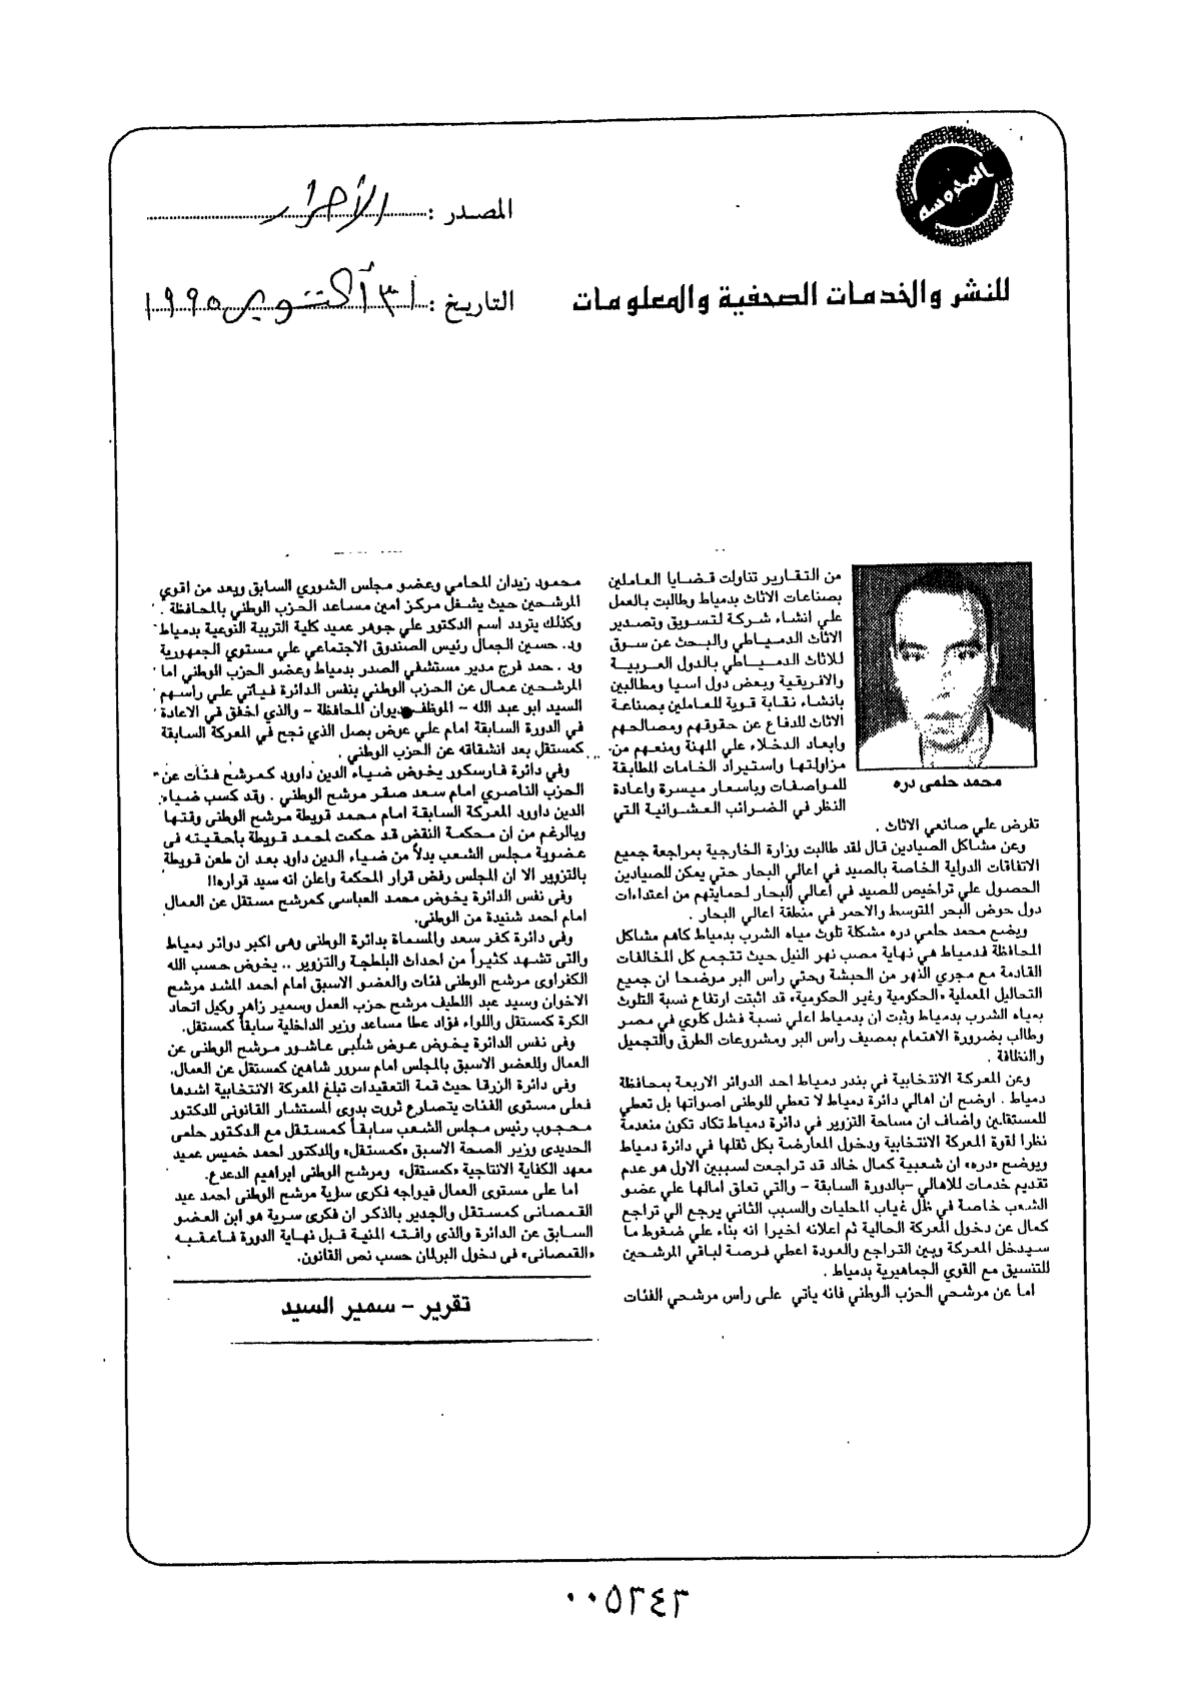 المحروسة
المصدر : الأحرار
للنشر والخدمات الصحفية والمعلومات
التاريخ : ٣١ أكتوبر ١٩٩٥
محمد حلمى دره
من التقارير تناولت قضايا العاملين
بصناعات الاثاث بدمياط وطالبت بالعمل
علي انشاء شركة لتسويق وتصدير
الاثاث الدمياطي والبحث عن سوق
للاثاث الدمياطي بالدول العربية
والافريقية وبعض دول اسيا ومطالبين
بانشاء نقابة قوية للعاملين بصناعة
الاثاث للدفاع عن حقوقهم ومصالحهم
وابعاد الدخلاء علي المهنة ومنعهم من
مزاولتها واستيراد الخامات المطابقة
للمواصفات وباسعار ميسرة واعادة
النظر في الضرائب العشوائية التي
تفرض علي صانعي الاثاث .
وعن مشاكل الصيادين قال لقد طالبت وزارة الخارجية بمراجعة جميع
الاتفاقات الدولية الخاصة بالصيد في اعالي البحار حتي يمكن للصيادين
الحصول علي تراخيص للصيد في أعالي البحار لحمايتهم من اعتداءات
دول حوض البحر المتوسط والاحمر في منطقة اعالي البحار .
ويضع محمد حلمي دره مشكلة تلوث مياه الشرب بدمياط كاهم مشاكل
المحافظة فدمياط هي نهاية مصب نهر النيل حيث تتجمع كل المخالفات
القادمة مع مجري النهر من الحبشة وحتي راس البر موضحا ان جميع
التحاليل المعملية «الحكومية وغير الحكومية» قد اثبتت ارتفاع نسبة التلوث
بمياه الشرب بدمياط وثبت ان بدمياط اعلي نسبة فشل كلوي في مصر
وطالب بضرورة الاهتمام بمصيف راس البر ومشروعات الطرق والتجميل
والنظافة .
وعن المعركة الانتخابية في بندر دمياط احد الدوائر الاربعة بمحافظة
دمياط . اوضح ان اهالي دائرة دمياط لا تعطي للوطنى اصواتها بل تعطي
للمستقلين واضاف ان مساحة التزوير في دائرة دمياط تكاد تكون منعدمة
نظرا لقوة المعركة الانتخابية ودخول المعارضة بكل ثقلها في دائرة دمياط
ويوضح «دره» ان شعبية كمال خالد قد تراجعت لسببين الاول هو عدم
تقديم خدمات للاهالي -بالدورة السابقة - والتي تعلق امالها علي عضو
الشعب خاصة في ظل غياب المحليات والسبب الثاني يرجع الي تراجع
كمال عن دخول المعركة الحالية ثم اعلانه اخيرا انه بناء علي ضغوط ما
سيدخل المعركة وبين التراجع والعودة اعطي فرصة لباقي المرشحين
للتنسيق مع القوي الجماهيرية بدمياط .
اما عن مرشحي الحزب الوطني فانه يأتي على راس مرشحي الفئات
محمود زيدان المحامي وعضو مجلس الشوري السابق ويعد من اقوي
المرشحين حيث يشغل مركز امين مساعد الحزب الوطني بالمحافظة .
وكذلك يتردد اسم الدكتور علي جوهر عميد كلية التربية النوعية بدمياط
ود. حسين الجمال رئيس الصندوق الاجتماعي علي مستوي الجمهورية
ود . حمد فرج مدير مستشفي الصدر بدمياط وعضو الحزب الوطني اما
المرشحين عمال عن الحزب الوطني بنفس الدائرة فياتي علي راسهم
السيد ابو عبد الله - الموظف بديوان المحافظة - والذي اخفق في الاعادة
في الدورة السابقة امام علي عرض بصل الذي نجح في المعركة السابقة
كمستقل بعد انشقاقه عن الحزب الوطني .
وفي دائرة فارسكور يخوض ضياء الدين داوود كمرشح فئات عن
الحزب الناصري امام سعد صقر مرشح الوطني . وقد كسب ضياء
الدين داوود المعركة السابقة امام محمد قويطة مرشح الوطنى وقتها
وبالرغم من ان محكمة النقض قد حكمت لمحمد قويطة باحقيته فى
عضوية مجلس الشعب بدلاً من ضياء الدين داود بعد ان طعن قويطة
بالتزوير الا ان المجلس رفض قرار المحكمة واعلن انه سيد قراره!!
وفى نفس الدائرة يخوض محمد العباسى كمرشح مستقل عن العمال
امام احمد شنيدة من الوطنى.
وفى دائرة كفر سعد والمسماة بدائرة الوطنى وهى اكبر دوائر دمياط
والتى تشهد كثيراً من احداث البلطجة والتزوير .. يخوض حسب الله
الكفراوى مرشح الوطنى فئات والعضو الاسبق امام احمد المشد مرشح
الاخوان وسيد عبد اللطيف مرشح حزب العمل وسمير زاهر وكيل اتحاد
الكرة كمستقل واللواء فؤاد عطا مساعد وزير الداخلية سابقاً كمستقل.
وفى نفس الدائرة يخوض عوض شلبى عاشور مرشح الوطنى عن
العمال وللعضو الاسبق بالمجلس امام سرور شاهين كمستقل عن العمال.
وفى دائرة الزرقا حيث قمة التعقيدات تبلغ المعركة الانتخابية اشدها
فعلى مستوى الفئات يتصارع ثروت بدوى المستشار القانونى للدكتور
محجوب رئيس مجلس الشعب سابقاً كمستقل مع الدكتور حلمى
الحديدى وزير الصحة الاسبق «كمستقل» والدكتور احمد خميس عميد
معهد الكفاية الانتاجية «كمستقل» ومرشح الوطنى ابراهيم الدعدع.
اما على مستوى العمال فيواجه فكرى سرية مرشح الوطنى احمد عبد
القمصانى كمستقل والجدير بالذكر ان فكرى سرية هو ابن العضو
السابق عن الدائرة والذى وافته المنية قبل نهاية الدورة فاعقبه
«القمصانى» فى دخول البرلمان حسب نص القانون.
تقرير - سمير السيد
٠٠٥٢٤٢